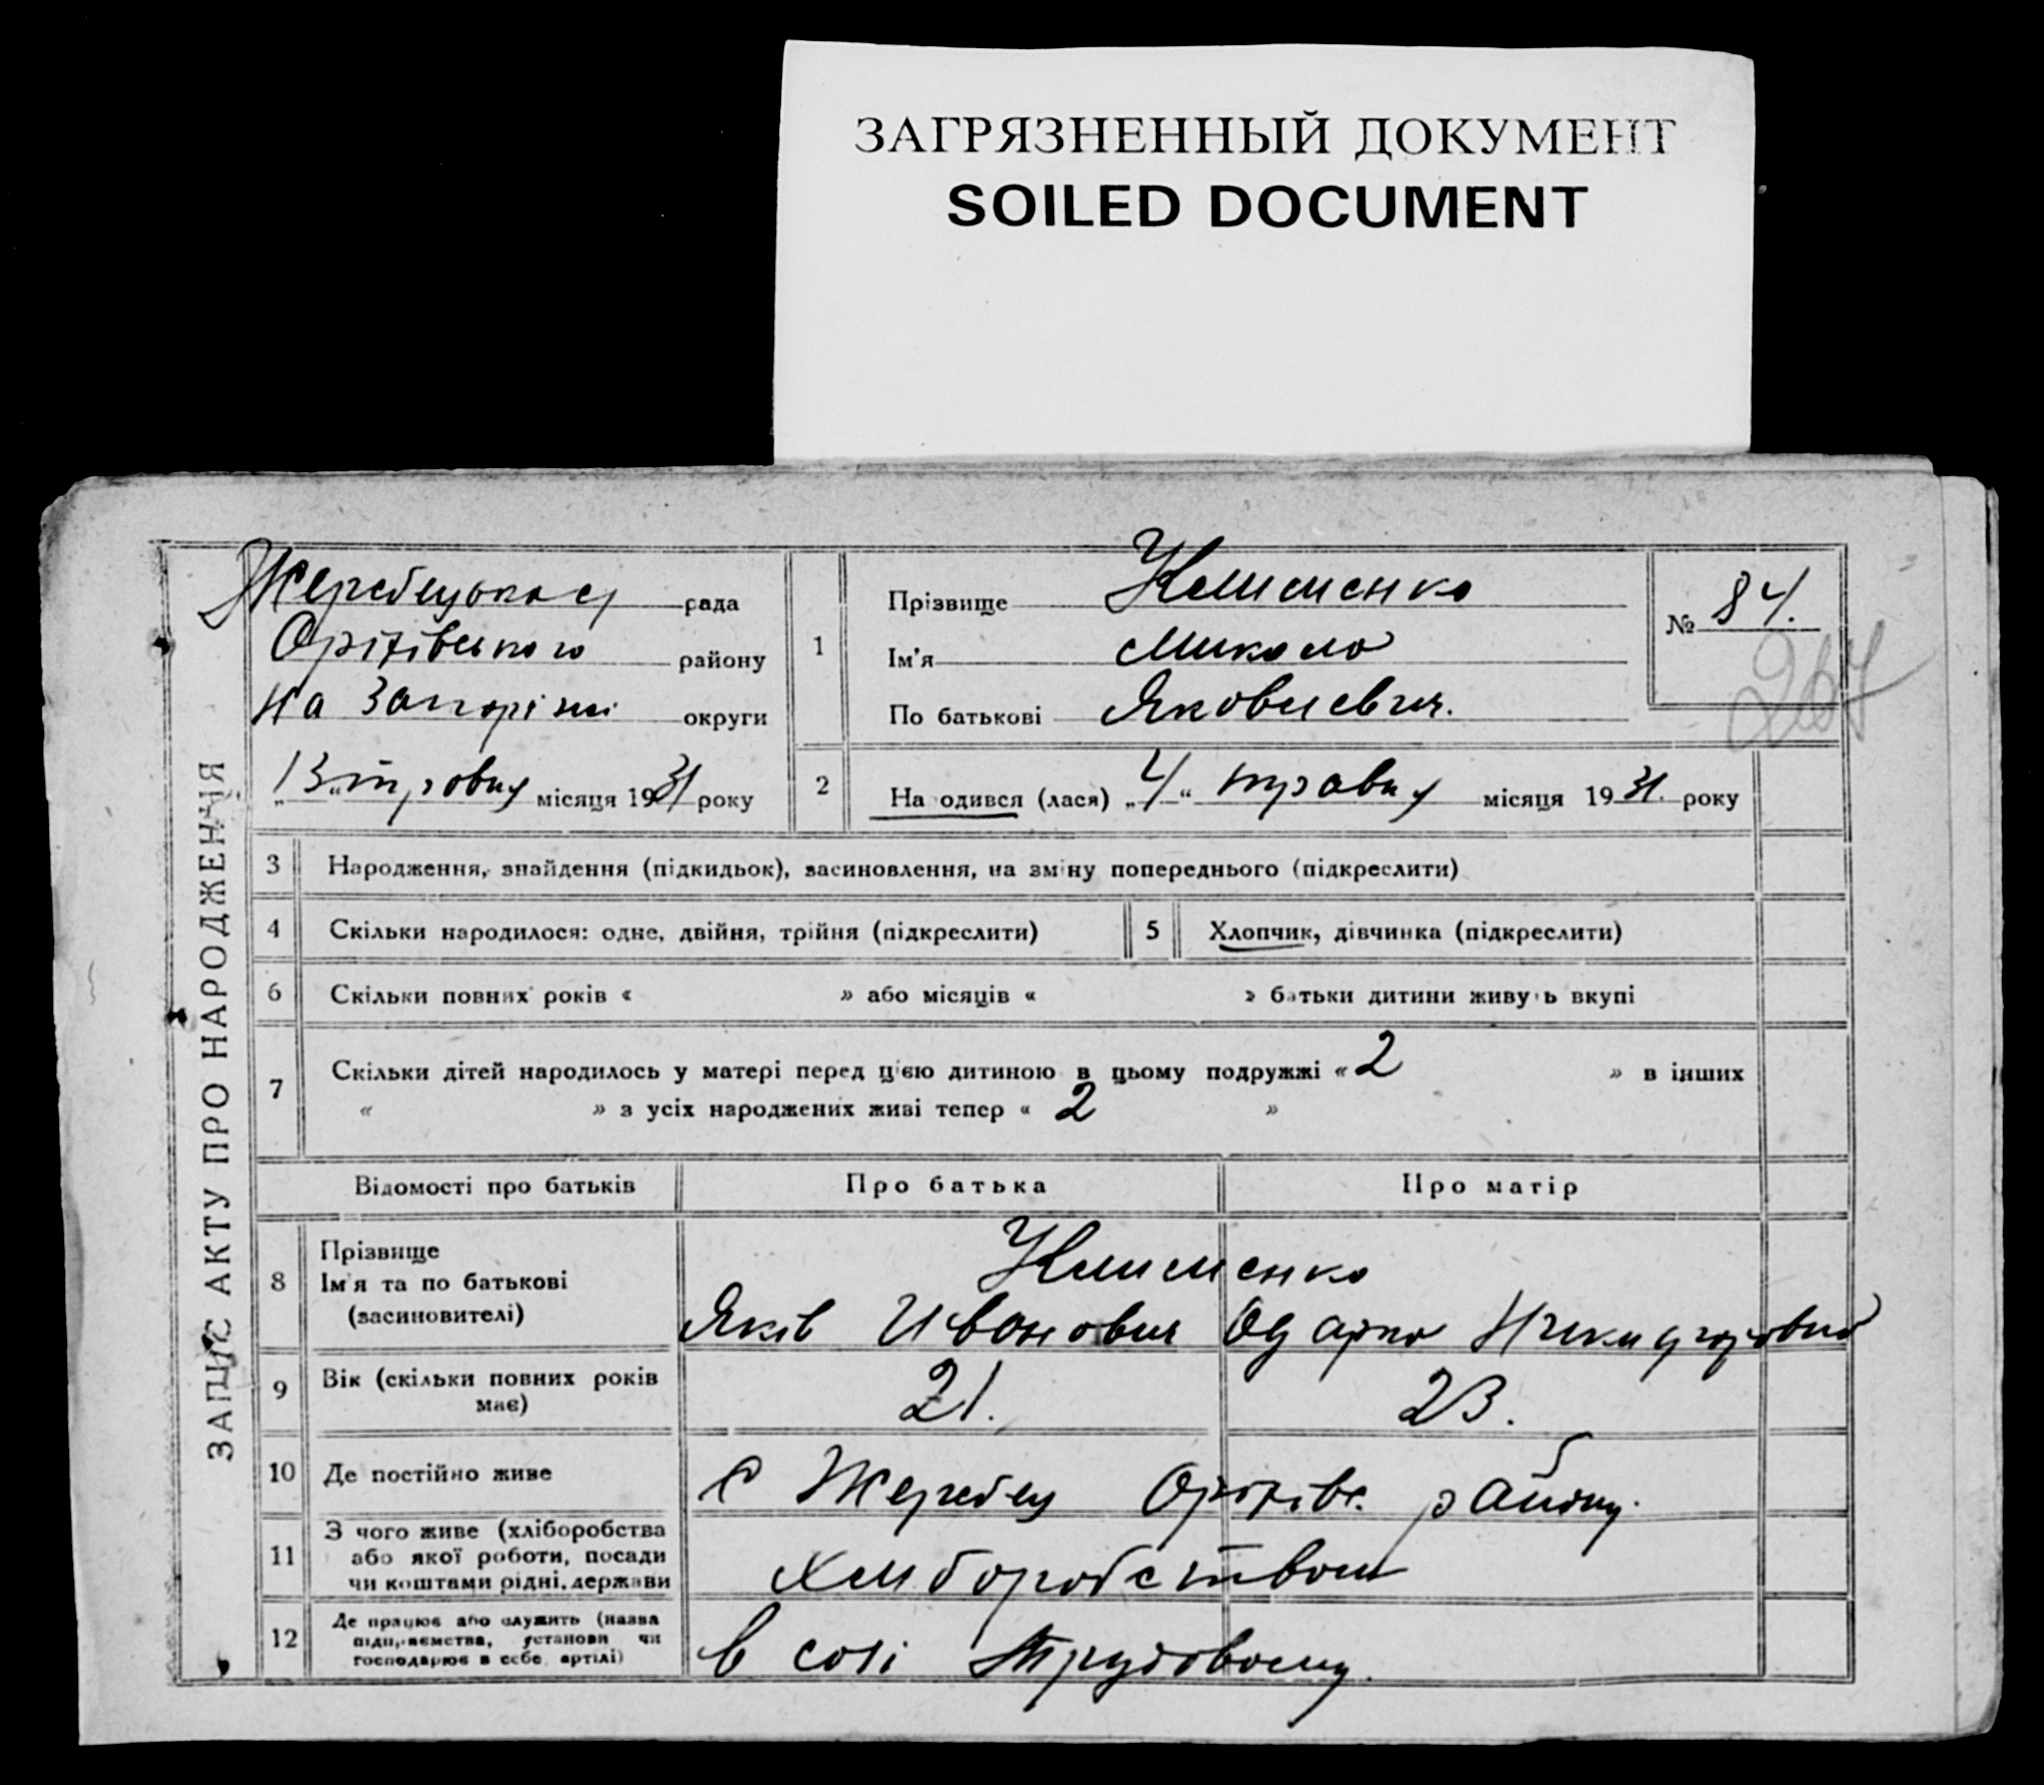 ЗАГРЯЗНЕННЫЙ ДОКУМЕНТ
SOILED DOCUMENT
ЗАПИС АКТУ ПРО НАРОДЖЕННЯ
Жеребецька рада
Оріхівського району
на Запоріжжі округи
„13“ травня місяця 1931 року
1 Прізвище Клименко
Ім'я Микола
По батькові Яковлевич.
№ 84.
267
2 На одився (лася) „4“ травня місяця 1931. року
3 Народження, знайдення (підкидьок), засиновлення, на зміну попереднього (підкреслити)
4 Скільки народилося: одне, двійня, трійня (підкреслити) 5 Хлопчик, дівчинка (підкреслити)
6 Скільки повних років « » або місяців « » батьки дитини живуть вкупі
7 Скільки дітей народилось у матері перед цією дитиною в цьому подружжі « 2 » в інших
« » з усіх народжених живі тепер « 2 »
Відомості про батьків Про батька Про матір
8 Прізвище
Ім'я та по батькові
(засиновителі)
Клименко
Яків Иванович Одарка Никифоровна
9 Вік (скільки повних років
має)
21. 23.
10 Де постійно живе с Жеребец Оріхівс. району.
11 З чого живе (хліборобства
або якої роботи, посади
чи коштами рідні, держави
Хлиборобством
12 Де працює або служить (назва
підприємства, установи чи
господарює в себе, артілі)
в созі